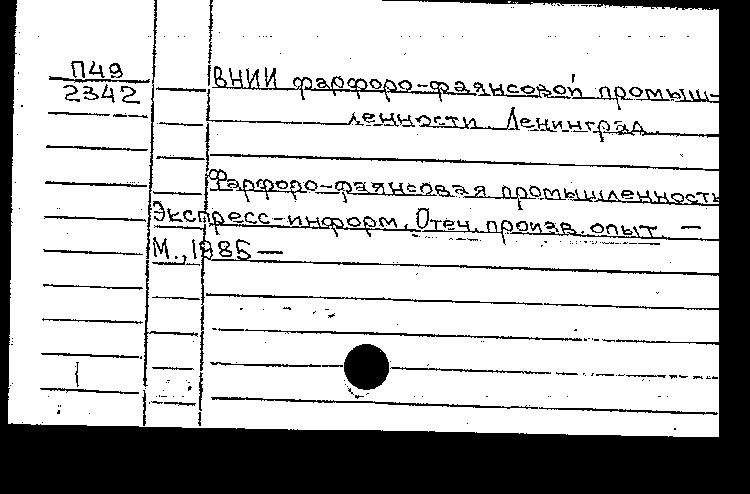 П49
2342
ВНИИ фарфоро-фаянсовой промыш-
ленности. Ленинград.
Фарфоро-фаянсовая промышленность
Экспресс-информ. Отеч. произв. опыт. —
М., 1985 —